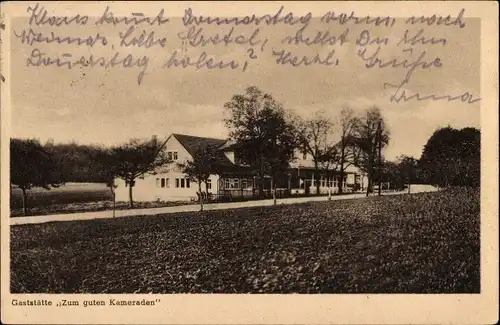 Klaus kommt Donnerstag vorm. nach
Weimar, liebe Gretel, willst Du ihn
Donnerstag holen? Herzl. Grüße
Irma
Gaststätte „Zum guten Kameraden"